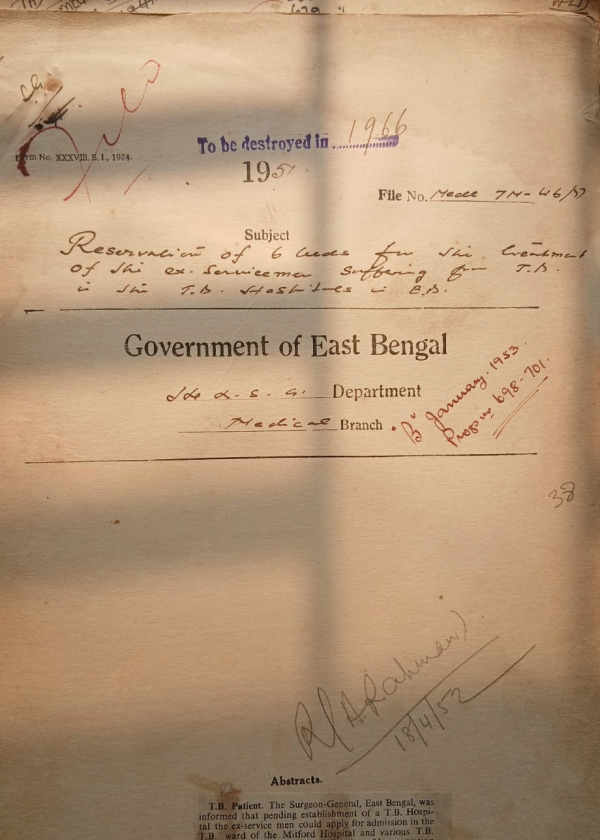 Form No. XXXVIII. S. I., 1924.
To be destroyed in 1966
1951
File No. Medl 7H-46/51
Subject
Reservation of 6 beds for the treatment
of the ex-servicemen suffering from T.B.
in the T.B. Hospitals in E.B.
Government of East Bengal
H & L. S. G. Department
Medical Branch
"B" January. 1953.
Progs 698-701.
38
A. Rahman
18/4/52
Abstracts.
T.B. Patient. The Surgeon-General, East Bengal, was
informed that pending establishment of a T.B. Hospi-
tal the ex-service men could apply for admission in the
T.B. ward of the Mitford Hospital and various T.B.